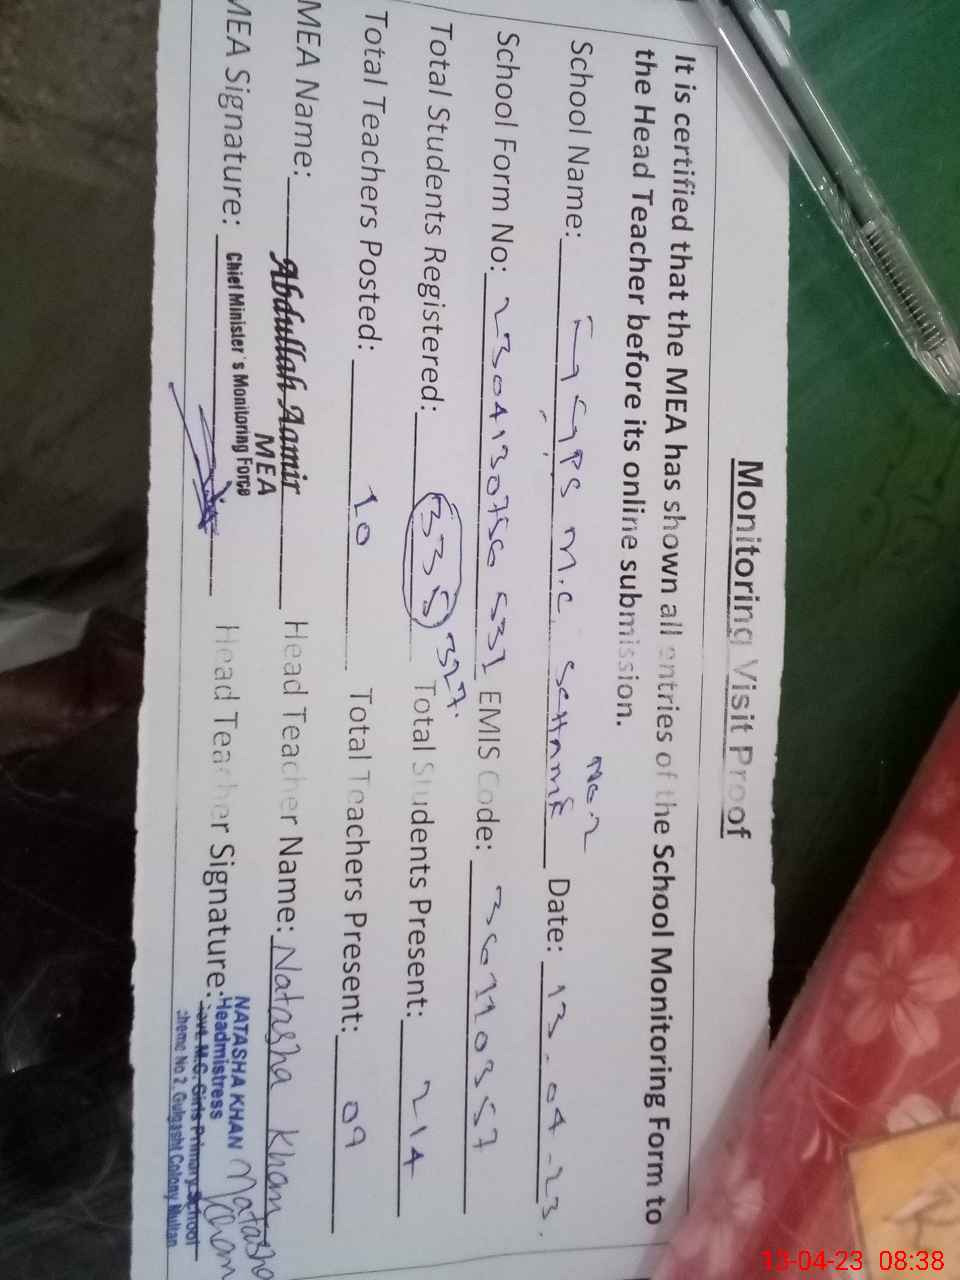 Monitoring Visit Proof
It is certified that the MEA has shown all entries of the School Monitoring Form to
the Head Teacher before its online submission.
No 2
School Name: GGPS M.C. SCHEME Date: 13.04-23.
School Form No: EMIS Code: 36110357
Total Students Registered: 335 327. Total Students Present: 214
Total Teachers Posted: 10 Total Teachers Present: 09
MEA Name: Abdullah Aamir Head Teacher Name: Natasha Khan
MEA
MEA Signature: Chief Minister's Monitoring Force Head Teacher Signature: Natasha Khan
NATASHA KHAN
Headmistress
Govt. M.C. Girls Primary School
Scheme No 2, Gulgasht Colony Multan
13-04-23 08:38